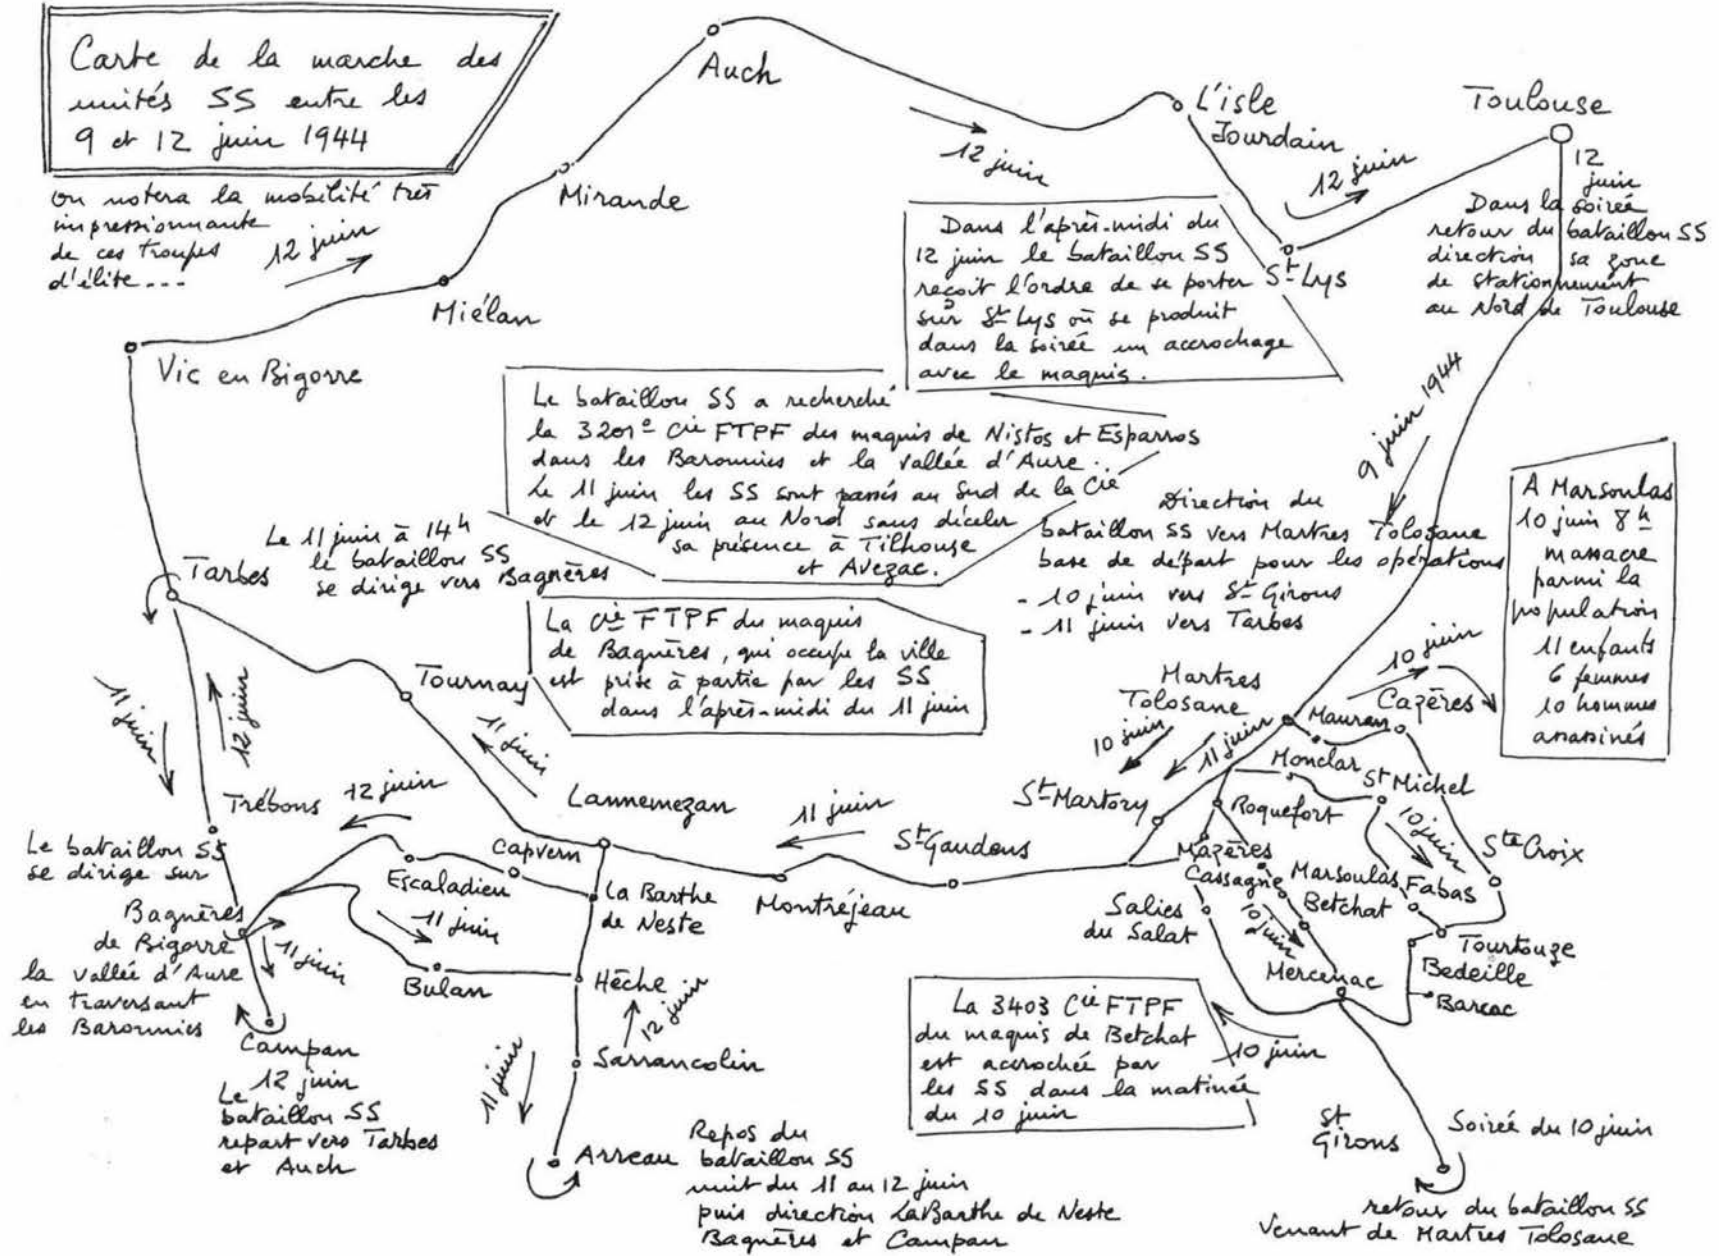 Carte de la marche des
unités SS entre les
9 et 12 juin 1944
on notera la mobilité très
impressionnante
de ces troupes
d'élite...
12 juin
Auch
12 juin
L'isle
Jourdain
Toulouse
12 juin
12
juin
Dans la soirée
retour du bataillon SS
direction sa zone
de stationnement
au Nord de Toulouse
Mirande
Miélan
Vic en Bigorre
Dans l'après-midi du
12 juin le bataillon SS
reçoit l'ordre de se porter
sur St Lys où se produit
dans la soirée un accrochage
avec le maquis.
St Lys
Le bataillon SS a recherché
la 3201e Cie FTPF des maquis de Nistos et Esparros
dans les Baronnies et la vallée d'Aure.
Le 11 juin les SS sont passés au Sud de la Cie
et le 12 juin au Nord sans déceler
sa présence à Tilhouse
et Avezac.
9 juin 1944
Direction du
bataillon SS vers Martres Tolosane
base de départ pour les opérations
- 10 juin vers St Girons
- 11 juin vers Tarbes
A Marsoulas
10 juin 8h
massacre
parmi la
population
11 enfants
6 femmes
10 hommes
assassinés
Tarbes
Le 11 juin à 14h
le bataillon SS
se dirige vers Bagnères
La Cie FTPF du maquis
de Bagnères, qui occupe la ville
est prise à partie par les SS
dans l'après-midi du 11 juin
Tournay
11 juin
12 juin
11 juin
Martres
Tolosane
10 juin
11 juin
10 juin
Cazères
Mauran
Monclar
St Michel
Roquefort
10 juin
Ste Croix
Trébons
12 juin
Lannemezan
11 juin
St Martory
St Gaudens
Capvern
Escaladieu
La Barthe
de Neste
Montréjeau
Mazères
Cassagne
Marsoulas
Betchat
Fabas
Salies
du Salat
10 juin
Tourtouze
Bedeille
Barcac
Mercenac
Le bataillon SS
se dirige sur
Bagnères
de Bigorre
la vallée d'Aure
en traversant
les Baronnies
11 juin
11 juin
Bulan
Hèche
12 juin
Sarrancolin
11 juin
Arreau
Campan
12 juin
Le
bataillon SS
repart vers Tarbes
et Auch
Repos du
bataillon SS
nuit du 11 au 12 juin
puis direction LaBarthe de Neste
Bagnères et Campan
La 3403 Cie FTPF
du maquis de Betchat
est accrochée par
les SS dans la matinée
du 10 juin
10 juin
St
Girons
Soirée du 10 juin
retour du bataillon SS
Venant de Martres Tolosane